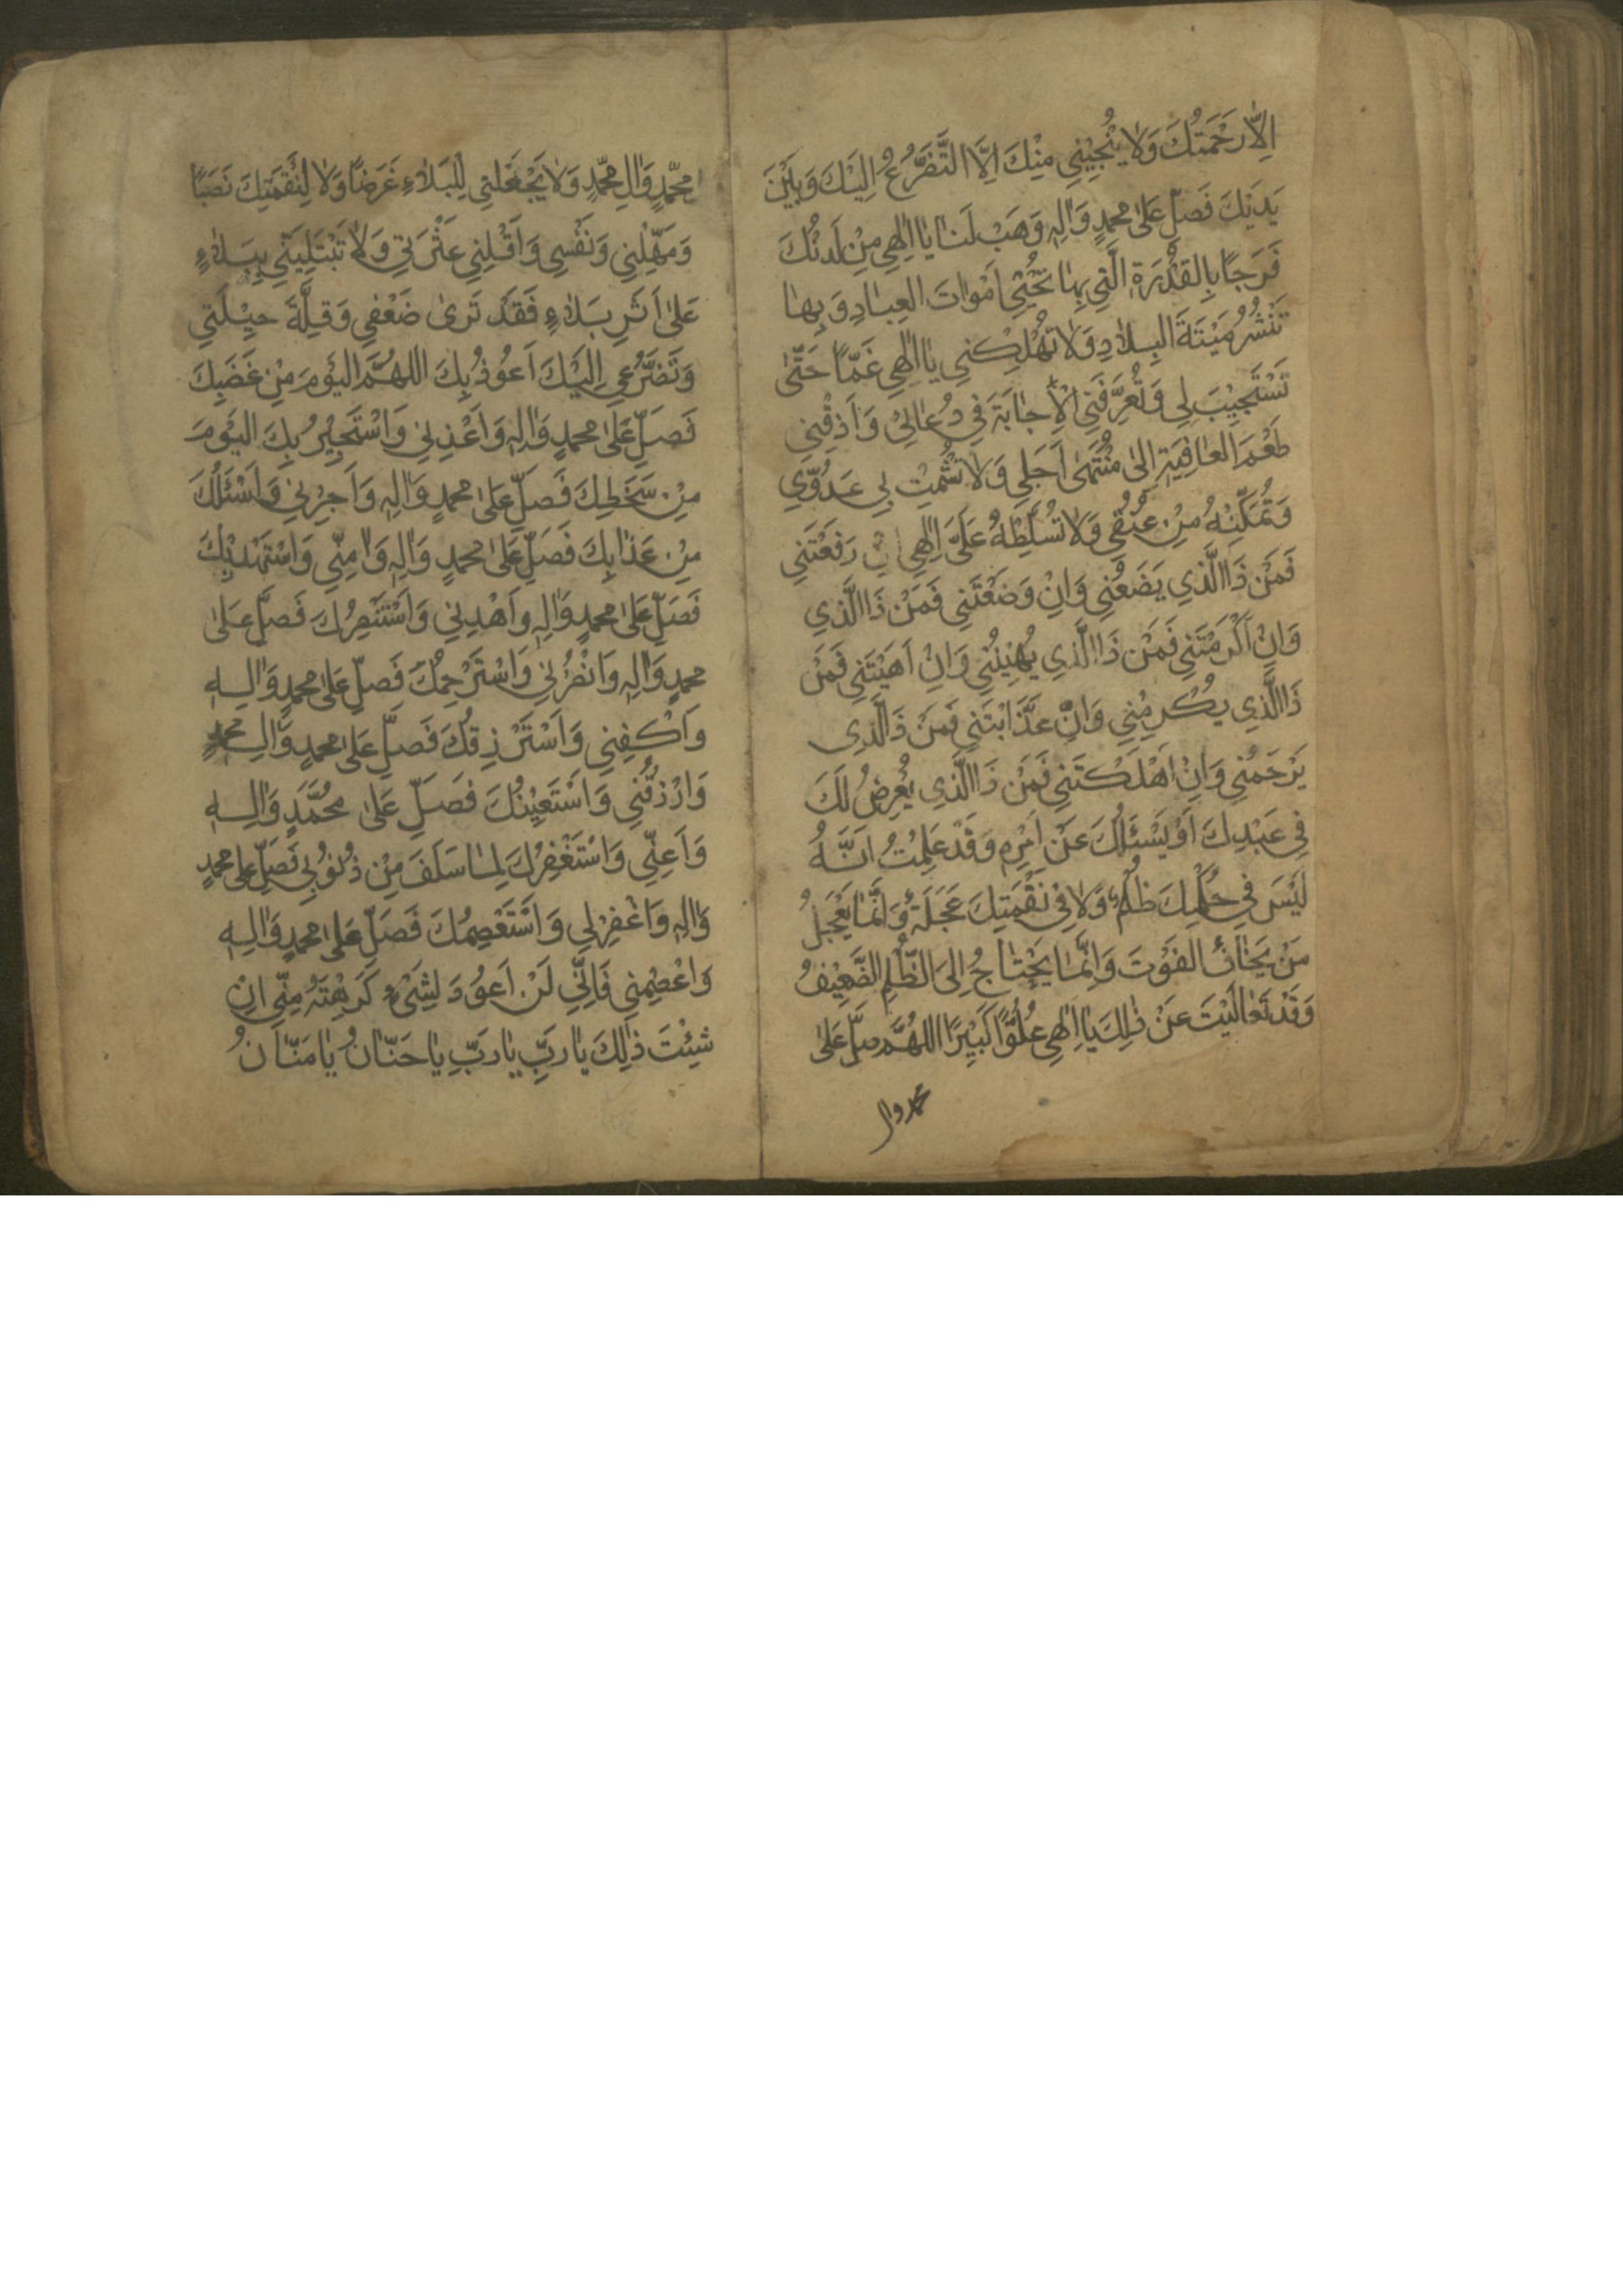 اِلَّا رَحْمَتُكَ وَلَا يُنْجِيْنِي مِنْكَ اِلَّا التَّضَرُّعُ اِلَيْكَ وَبَيْنَ
يَدَيْكَ فَصَلِّ عَلىٰ محمدٍ وَاٰلِهٖ وَهَبْ لَنٰا يٰا اِلٰهِي مِنْ لَدُنْكَ
فَرَجًا بِالقُدْرَةِ الَّتِي بِهٰا تُحْيِي اَمْوٰاتَ العِبٰادِ وَبِهٰا
تَنْشُرُ مَيْتَةَ البِلٰادِ وَلٰا تُهْلِكْنِي يٰا اِلٰهِي غَمّاً حَتّٰى
تَسْتَجِيْبَ لِي وَتُعَرِّفَنِي الاِجٰابَةَ فِي دُعٰائِيْ وَاَذِقْنِي
طَعْمَ العٰافِيَةِ اِلىٰ مُنْتَهىٰ اَجَلِي وَلٰا تُشْمِتْ بِي عَدُوِّي
وَتُمَكِّنْهُ مِنْ عُنُقِي وَلٰا تُسَلِّطْهُ عَلَيَّ اِلٰهِي اِنْ رَفَعْتَنِي
فَمَنْ ذَا الَّذِي يَضَعُنِي وَاِنْ وَضَعْتَنِي فَمَنْ ذَا الَّذِي
وَاِنْ اَكْرَمْتَنِي فَمَنْ ذَا الَّذِي يُهِيْنُنِي وَاِنْ اَهَنْتَنِي فَمَنْ
ذَا الَّذِي يُكْرِمُنِي وَاِنْ عَذَّابْتَنِي فَمَنْ ذَا لَّذِى
يَرْحَمُنِي وَاِنْ اَهْلَكْتَنِي فَمَنْ ذَا الَّذِي يُعْرِضُ لَكَ
فِي عَبْدِكَ اَوْ يَسْئَلُكَ عَنْ اَمْرِهٖ وَقَدْ عَلِمْتُ اَنَّهُ
لَيْسَ فِي حُكْمِكَ ظُلْمٌ وَلٰا فِي نَقْمَتِكَ عَجَلَةٌ وَاِنَّمٰا يَعْجَلُ
مَنْ يَخٰافُ الفَوْتَ وَاِنَّمٰا يَحْتٰاجُ اِلىَ الظُّلْمِ الضَّعِيْفُ
وَقَدْ تَعٰالَيْتَ عَنْ ذٰلِكَ يٰا اِلٰهِي عُلُوًّا كَبِيْرًا اللهُمَّ صَلِّ عَلىٰ
محمد وال
محمّدٍ وَاٰلِ محمّدٍ وَلٰا تَجْعَلنِي لِلْبَلٰاءِ غَرَضًا وَلٰا لِنَقْمَتِكَ نَصَبًا
وَمَهِّلْنِي وَنَفِّسْنِي وَاَقِلْنِي عَثْرَتِي وَلٰا تَبْتَلِيَنِّي بِبَلٰاءٍ
عَلىٰ اَثَرِ بَلٰاءٍ فَقَدْ تَرىٰ ضَعْفِي وَقِلَّةَ حِيْلَتِي
وَتَضَرُّعِي اِلَيْكَ اَعُوْذُ بِكَ اللهُمَّ اليَوْمَ مِنْ غَضَبِكَ
فَصَلِّ عَلىٰ محمدٍ وَاٰلِهٖ وَاَعِذْنِي وَاَسْتَجِيْرُ بِكَ اليَوْمَ
مِنْ سَخَطِكَ فَصَلِّ عَلىٰ محمدٍ وَاٰلِهٖ وَاَجِرْنِي وَاَسْئَلُكَ
مِنْ عَذٰابِكَ فَصَلِّ عَلىٰ محمدٍ وَاٰلِهٖ وَاٰمِنِّي وَاَسْتَهْدِيْكَ
فَصَلِّ عَلىٰ محمدٍ وَاٰلِهٖ وَاهْدِنِي وَاَسْتَنْصِرُكَ فَصَلِّ عَلىٰ
محمدٍ وَاٰلِهٖ وَانْصُرْنِي وَاَسْتَرْحِمُكَ فَصَلِّ عَلىٰ محمدٍ وَاٰلِهٖ
وَاكْفِنِي وَاَسْتَرْزِقُكَ فَصَلِّ عَلىٰ محمدٍ وَاٰلِ محمدٍ
وَارْزُقْنِي وَاَسْتَعِيْنُكَ فَصَلِّ عَلىٰ مُحَمَّدٍ وَاٰلِهٖ
وَاَعِنِّي وَاَسْتَغْفِرُكَ لِمٰا سَلَفَ مِنْ ذُنُوْبِي فَصَلِّ على محمدٍ
وَاٰلِهٖ وَاغْفِرْلِي وَاَسْتَعْصِمُكَ فَصَلِّ عَلىٰ محمدٍ وَاٰلِهٖ
وَاعْصِمْنِي فَاِنِّي لَنْ اَعُوْدَ لِشَيْءٍ كَرِهْتَهُ مِنِّي اِنْ
شِئْتَ ذٰلِكَ يٰا رَبِّ يٰا رَبِّ يٰا حَنّٰانُ يٰا مَنّٰانُ